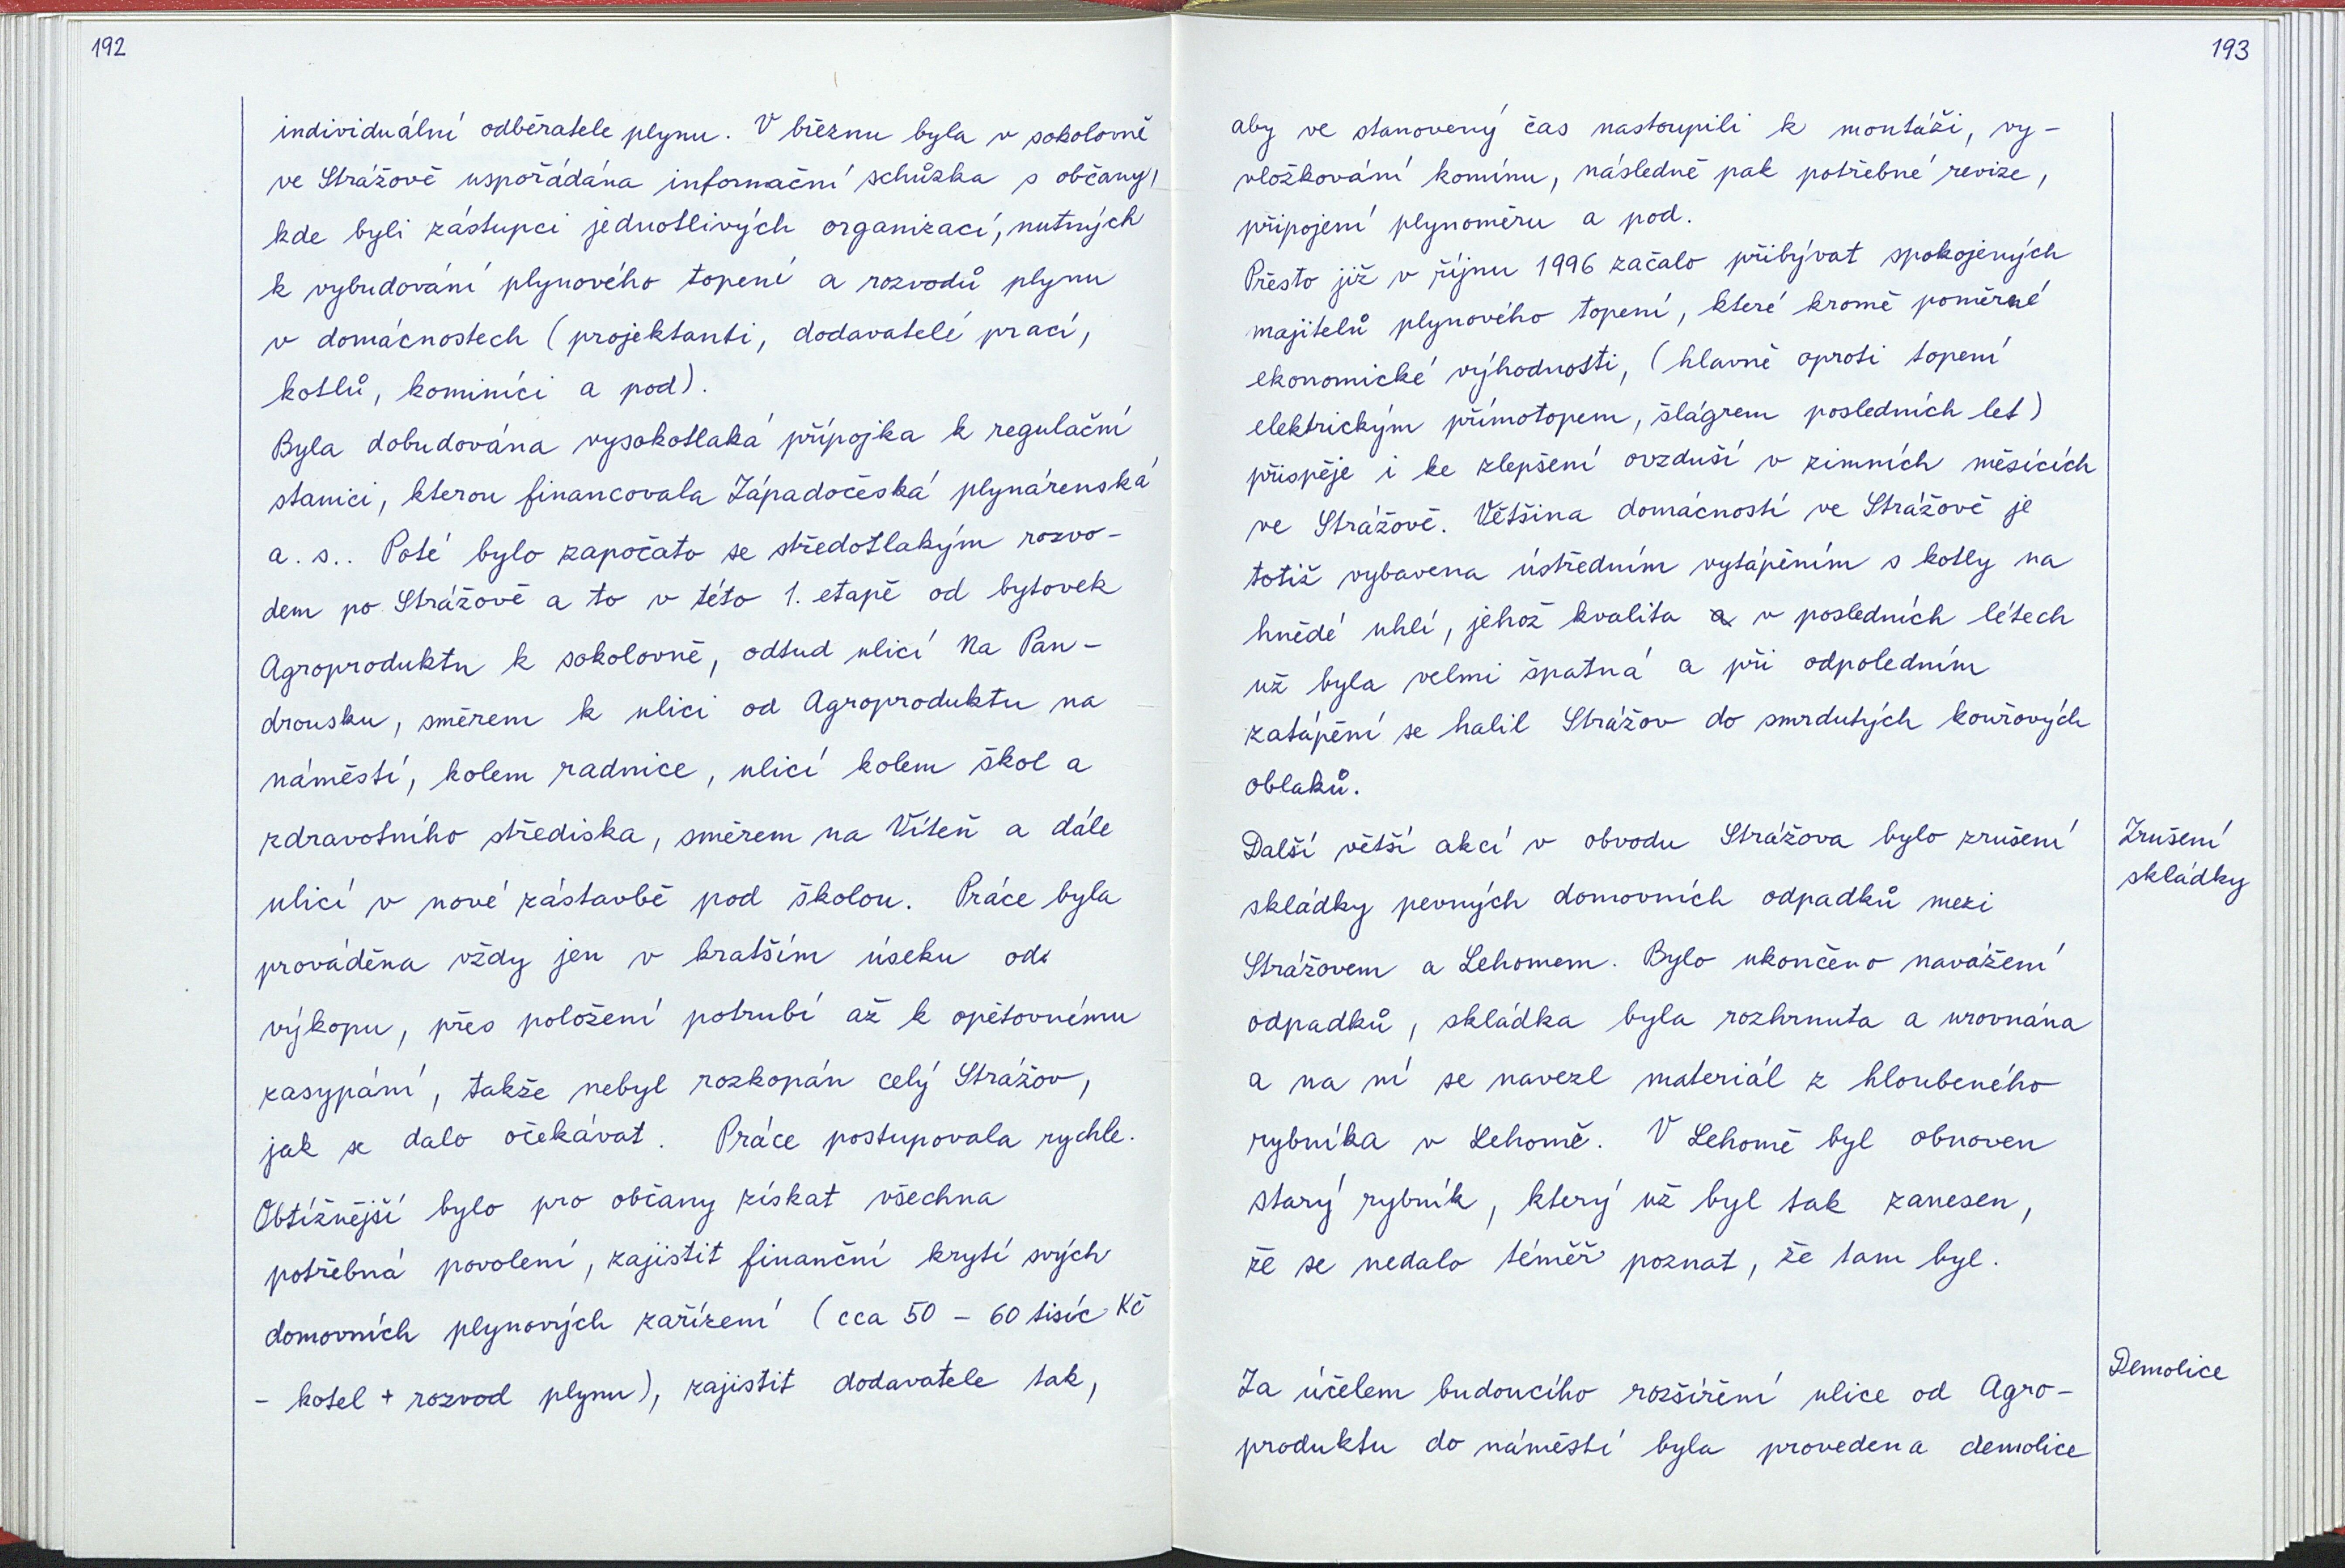 192
individuální odběratele plynu. V březnu byla v sokolovně
ve Strážově uspořádána informační schůzka s občany,
kde byli zástupci jednotlivých organizací, nutných
k vybudování plynového topení a rozvodů plynu
v domácnostech (projektanti, dodavatelé prací,
kotlů, kominíci a pod).
Byla dobudována vysokotlaká přípojka k regulační
stanici, kterou financovala Západočeská plynárenská
a. s.. Poté bylo započato se středotlakým rozvo-
dem po Strážově a to v této 1. etapě od bytovek
Agroproduktu k sokolovně, odtud ulicí Na Pan-
drousku, směrem k ulici od Agroproduktu na
náměstí, kolem radnice, ulicí kolem škol a
zdravotního střediska, směrem na Víteň a dále
ulicí v nové zástavbě pod školou. Práce byla
prováděna vždy jen v kratším úseku od
výkopu, přes položení potrubí až k opětovnému
zasypání, takže nebyl rozkopán celý Strážov,
jak se dalo očekávat. Práce postupovala rychle.
Obtížnější bylo pro občany získat všechna
potřebná povolení, zajistit finanční krytí svých
domovních plynových zařízení (cca 50 - 60 tisíc Kč
- kotel + rozvod plynu), zajistit dodavatele tak,
193
aby ve stanovený čas nastoupili k montáži, vy-
vložkování komínu, následně pak potřebné revize,
připojení plynoměru a pod.
Přesto již v říjnu 1996 začalo přibývat spokojených
majitelů plynového topení, které kromě poměrné
ekonomické výhodnosti, (hlavně oproti topení
elektrickým přímotopem, šlágrem posledních let)
přispěje i ke zlepšení ovzduší v zimních měsících
ve Strážově. Většina domácností ve Strážově je
totiž vybavena ústředním vytápěním s kotly na
hnědé uhlí, jehož kvalita a v posledních létech
už byla velmi špatná a při odpoledním
zatápění se halil Strážov do smrdutých kouřových
oblaků.
Další větší akcí v obvodu Strážova bylo zrušení
skládky pevných domovních odpadků mezi
Strážovem a Lehomem. Bylo ukončeno navážení
odpadků, skládka byla rozhrnuta a urovnána
a na ní se navezl materiál z hloubeného
rybníka v Lehomě. V Lehomě byl obnoven
starý rybník, který už byl tak zanesen,
že se nedalo téměř poznat, že tam byl.
Za účelem budoucího rozšíření ulice od Agro-
produktu do náměstí byla provedena demolice
Zrušení
skládky
Demolice